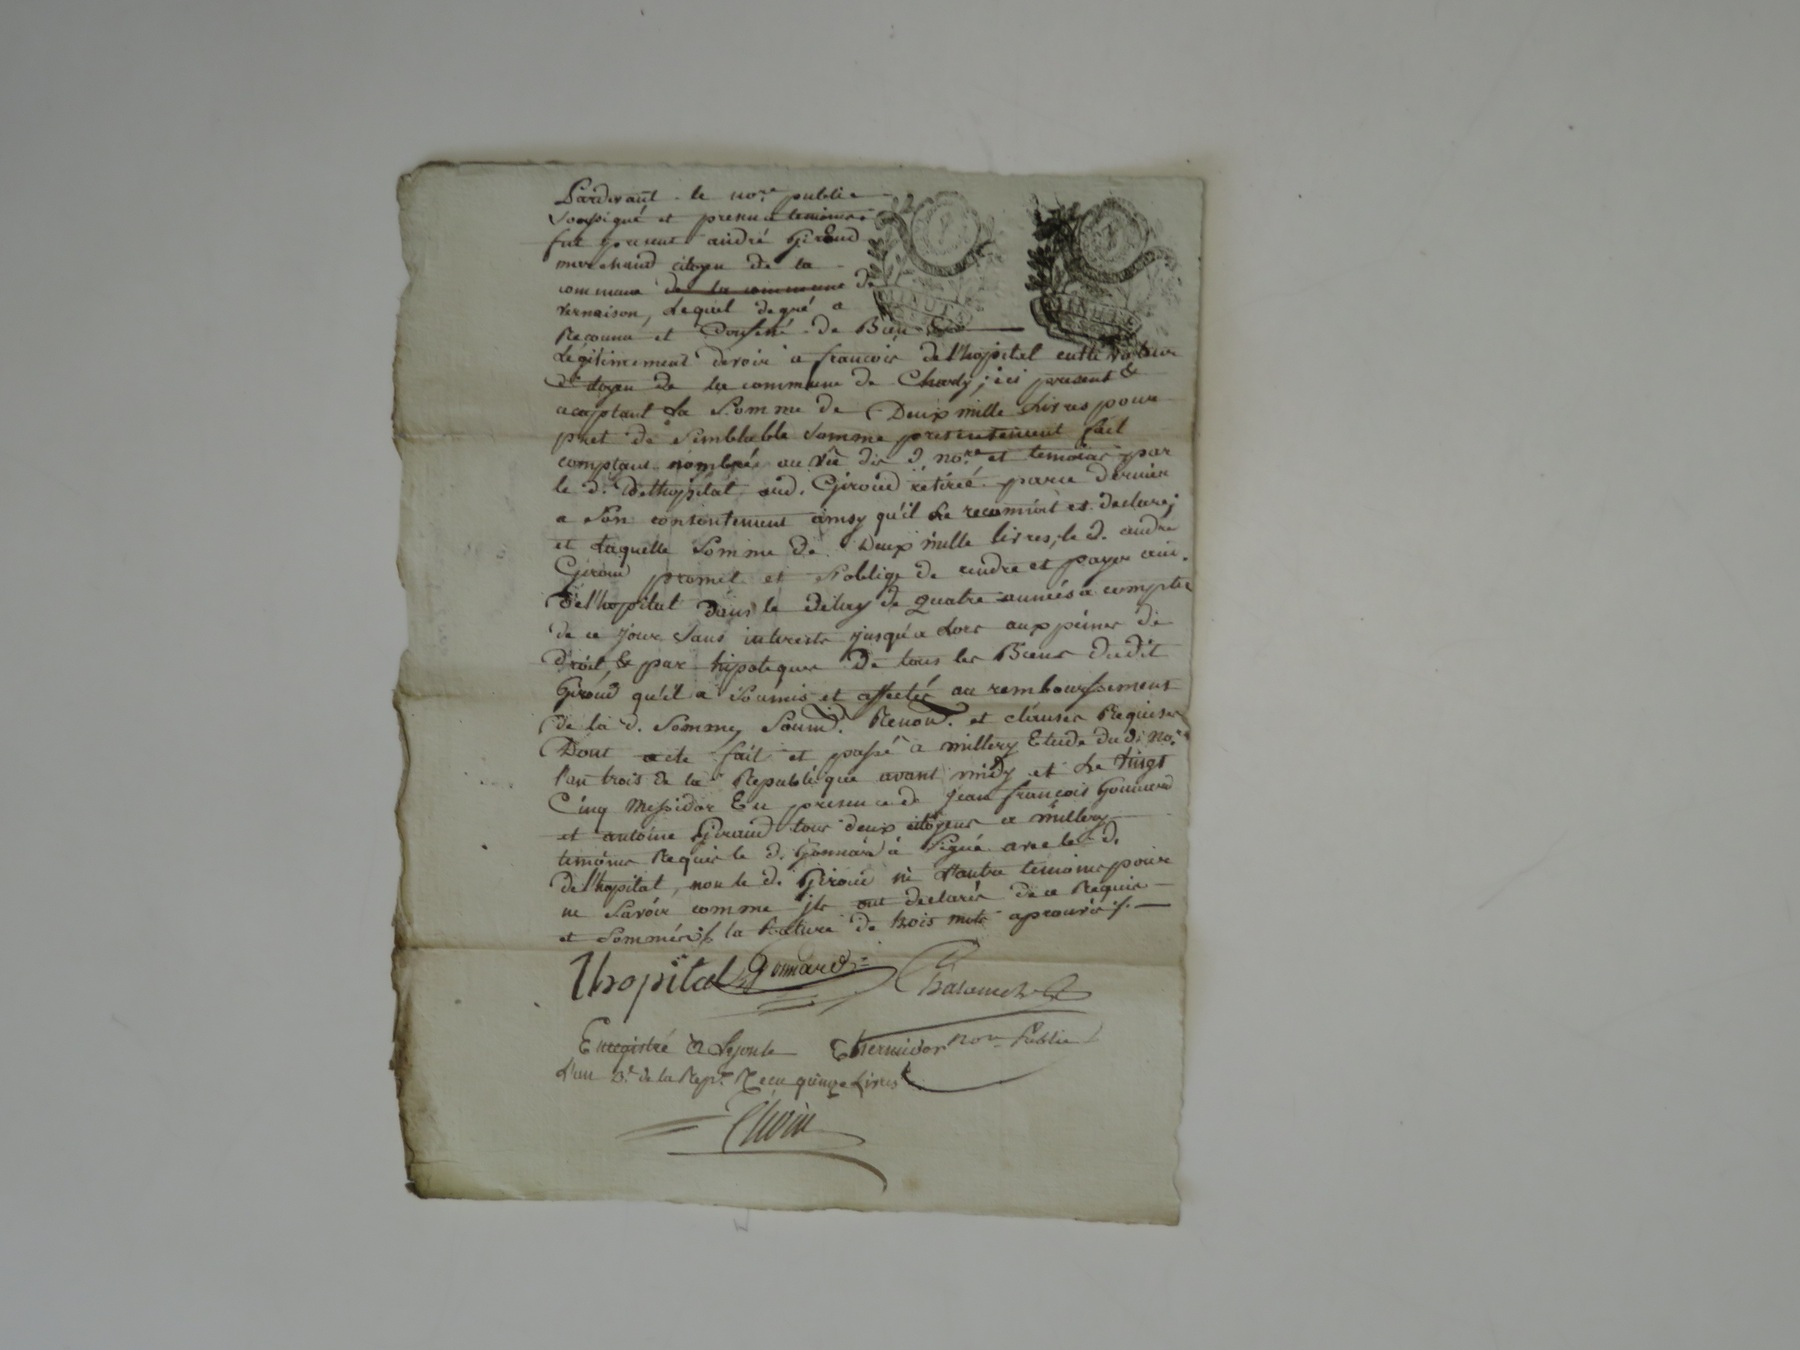 Pardevant le nore public
Soussigné et presens temoins
fut present andré Giroud
marchand citoyen de la
commune de la commune de
vernaison, Lequel de gré a
Reconnu et Confessé de Bien &
Légitimement devoir a francois de l'hopital cultivateur
citoyen de la commune de Charly, ici present &
acceptant La Somme de Deux mille Livres pour
pret de Semblable Somme presentement fait
comptant nombrée au vû du d. nore et temoins par
le d. Delhopital aud. Giroud retirée par ce dernier
a Son contentement ainsy qu'il Le reconnoit et declare;
et Laquelle Somme de Deux mille livres, le d. andre
Giroud promet et S'oblige de rendre et payer aud.
De l'hopital dans le delay de quatre années a compter
de ce jour Sans interests jusqu'a Lors aux peines de
Droit, & par hipoteques de tous les Biens dudit
Giroud qu'il a Soumis et affectés au remboursement
de la d. Somme, Soumd. Renond. et clauses Requises
Dont acte fait et passé a millery Etude du d. Nore
l'an trois de la Republique avant midy et Le vingt
Cinq Messidor En presence de Jean françois Gonnard
et antoine Giraud tous deux citoyens a millery
temoins Requis le d. Gonnard à Signé avec le d.
de l'hopital, non le d. Giroud ni l'autre temoins pour
ne Savoir comme ils ont declarés de ce Requis
et Sommés ./. la Rature de trois mots aprouvée ./.
lhopital Gonnard
Enregistré Thermidor nore Public
L'an 3e. de la Repe. Recu quinze Livres